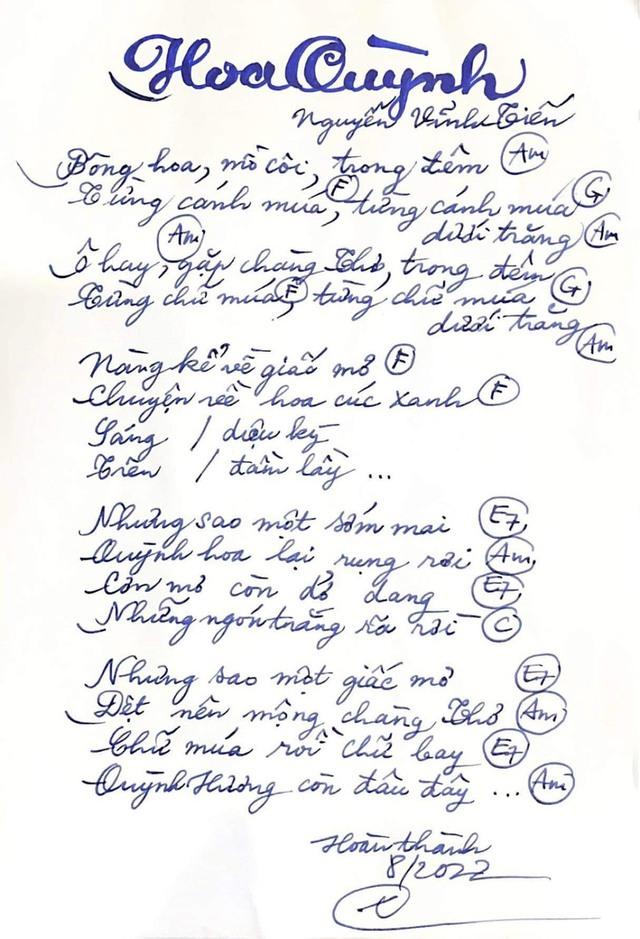 Hoa Quỳnh
Nguyễn Vĩnh Tiến
Bông hoa, mồ côi, trong đêm Am
Từng cánh múa, F từng cánh múa G
dưới trăng Am
Am
Ô hay, gặp chàng Thơ, trong đêm
Từng chữ múa, F từng chữ múa G
dưới trăng Am
Nàng kể về giấc mơ F
Chuyện về hoa cúc xanh F
Sáng / diệu kỳ
Trên / đầm lầy ...
Nhưng sao một sớm mai E7
Quỳnh hoa lại rụng rơi Am
Cơn mơ còn dở dang E7
Những ngón trắng rã rời C
Nhưng sao một giấc mơ E7
Dệt nên mộng chàng Thơ Am
Chữ múa rồi chữ bay E7
Quỳnh Hương còn đâu đây ... Am
Hoàn thành
8/2022